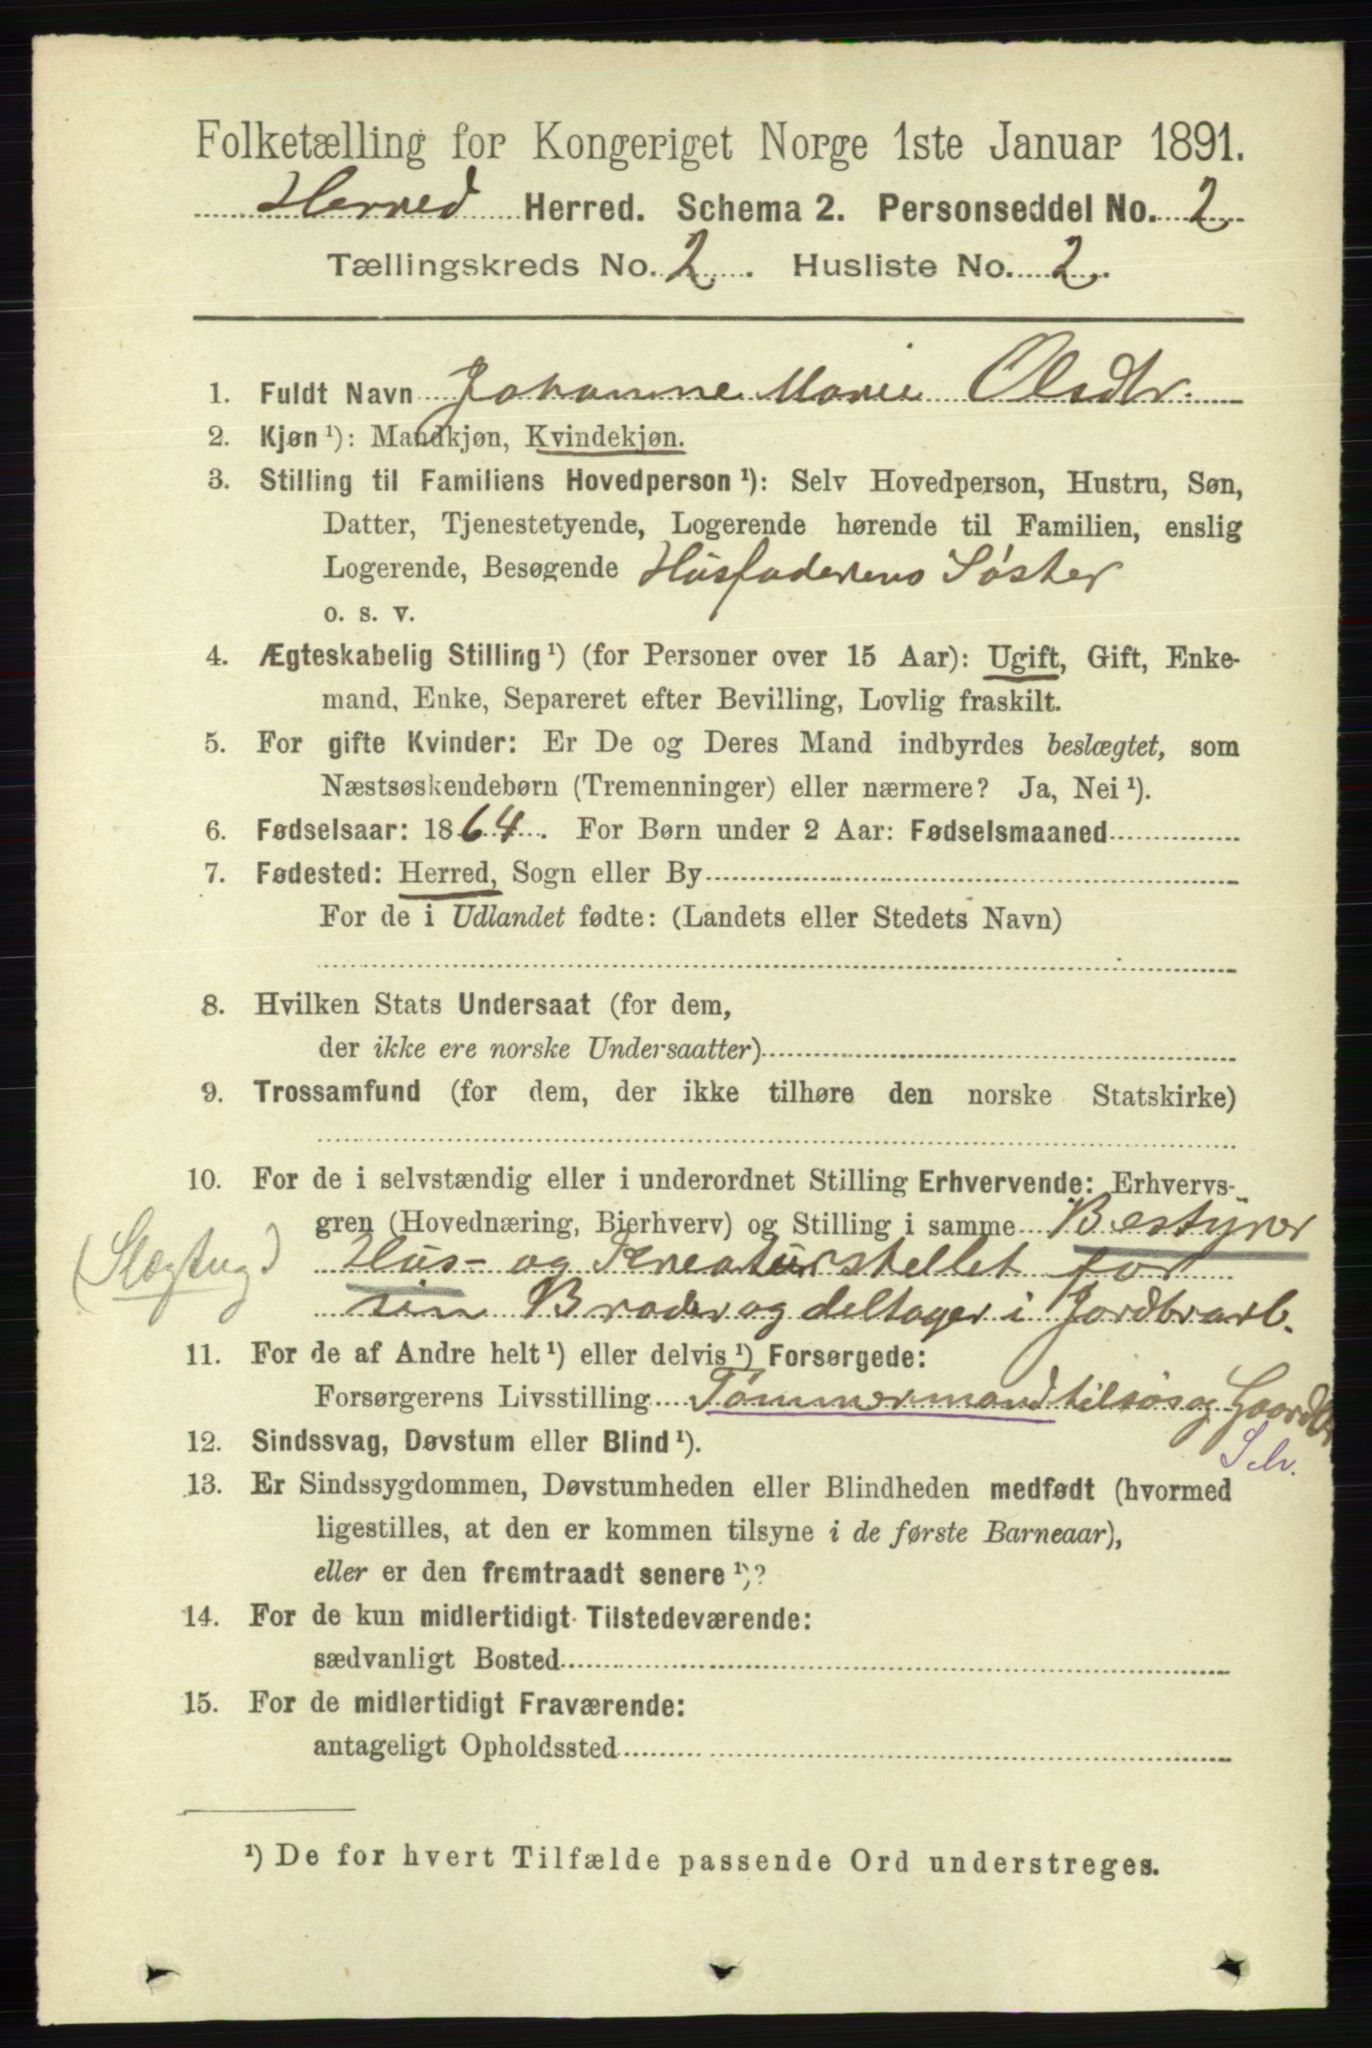 Folketælling for Kongeriget Norge 1ste Januar 1891.
Herred Herred. Schema 2. Personseddel No. 2
Tællingskreds No. 2. Husliste No. 2.
1. Fuldt Navn Johanne Marie Olsdtr.
2. Kjøn ¹): Mandkjøn, Kvindekjøn.
3. Stilling til Familiens Hovedperson ¹): Selv Hovedperson, Hustru, Søn,
Datter, Tjenestetyende, Logerende hørende til Familien, enslig
Logerende, Besøgende Husfaderens Søster
o. s. v.
4. Ægteskabelig Stilling ¹) (for Personer over 15 Aar): Ugift, Gift, Enke-
mand, Enke, Separeret efter Bevilling, Lovlig fraskilt.
5. For gifte Kvinder: Er De og Deres Mand indbyrdes beslægtet, som
Næstsøskendebørn (Tremenninger) eller nærmere? Ja, Nei ¹).
6. Fødselsaar: 1864. For Børn under 2 Aar: Fødselsmaaned
7. Fødested: Herred, Sogn eller By
For de i Udlandet fødte: (Landets eller Stedets Navn)
8. Hvilken Stats Undersaat (for dem,
der ikke ere norske Undersaatter)
9. Trossamfund (for dem, der ikke tilhøre den norske Statskirke)
10. For de i selvstændig eller i underordnet Stilling Erhvervende: Erhvervs-
gren (Hovednæring, Bierhverv) og Stilling i samme Bestyrer
(Slægtug) Hus- og Kreaturstellet for
sin Broder og deltager i Jordbrarb.
11. For de af Andre helt ¹) eller delvis ¹) Forsørgede:
Forsørgerens Livsstilling Tømmermand tilsøs og Gaardbr
Selv.
12. Sindssvag, Døvstum eller Blind ¹).
13. Er Sindssygdommen, Døvstumheden eller Blindheden medfødt (hvormed
ligestilles, at den er kommen tilsyne i de første Barneaar),
eller er den fremtraadt senere ¹)?
14. For de kun midlertidigt Tilstedeværende:
sædvanligt Bosted
15. For de midlertidigt Fraværende:
antageligt Opholdssted
¹) De for hvert Tilfælde passende Ord understreges.